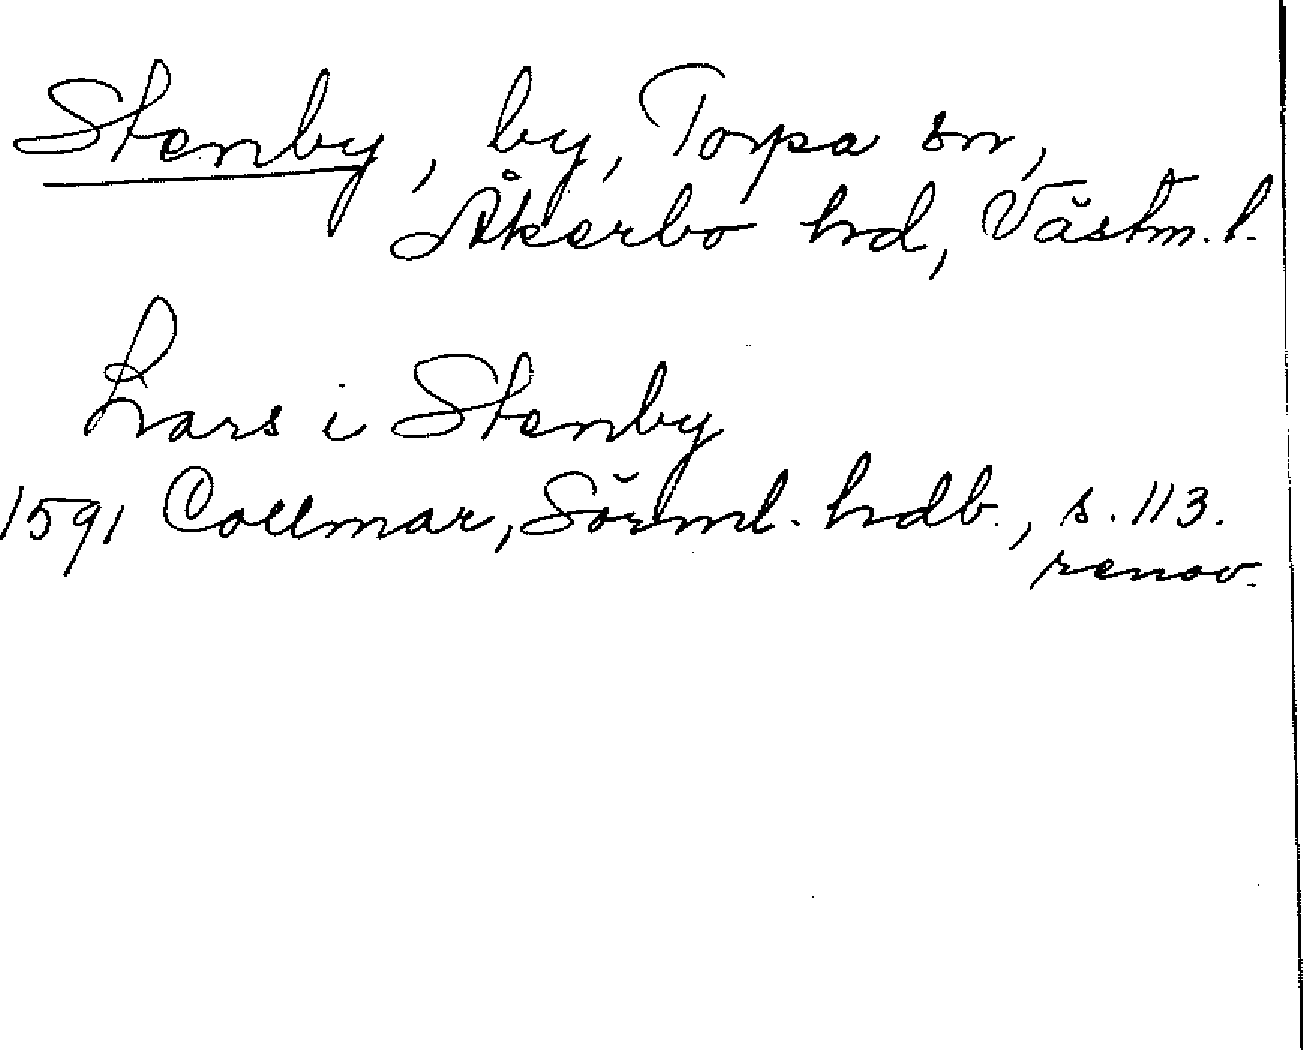 Stenby, by, Torpa sn,
Åkerbo hd, Västm. l.
Lars i Stenby
1591 Collmar, Sörml. hdb., s. 113.
renov.